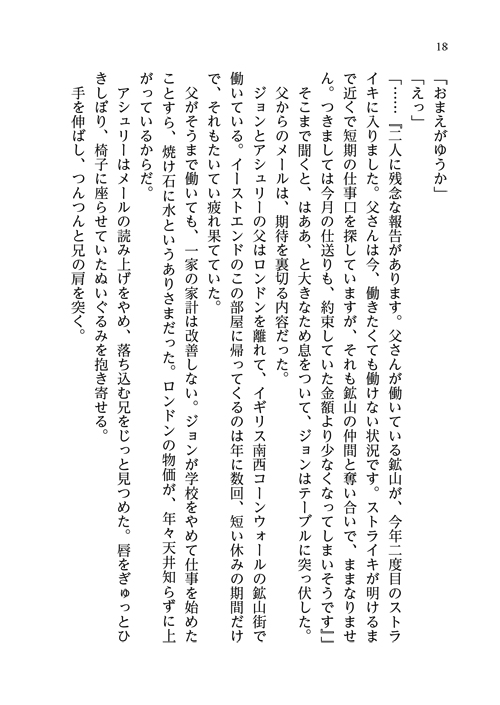 18
「おまえがゆうか」
「えっ」
「……『二人に残念な報告があります。父さんが働いている鉱山が、今年二度目のストラ
イキに入りました。父さんは今、働きたくても働けない状況です。ストライキが明けるま
で近くで短期の仕事口を探していますが、それも鉱山の仲間と奪い合いで、ままなりませ
ん。つきましては今月の仕送りも、約束していた金額より少なくなってしまいそうです』」
そこまで聞くと、はああ、と大きなため息をついて、ジョンはテーブルに突っ伏した。
父からのメールは、期待を裏切る内容だった。
ジョンとアシュリーの父はロンドンを離れて、イギリス南西コーンウォールの鉱山街で
働いている。イーストエンドのこの部屋に帰ってくるのは年に数回、短い休みの期間だけ
で、それもたいてい疲れ果てていた。
父がそうまで働いても、一家の家計は改善しない。ジョンが学校をやめて仕事を始めた
ことすら、焼け石に水というありさまだった。ロンドンの物価が、年々天井知らずに上
がっているからだ。
アシュリーはメールの読み上げをやめ、落ち込む兄をじっと見つめた。唇をぎゅっとひ
きしぼり、椅子に座らせていたぬいぐるみを抱き寄せる。
手を伸ばし、つんつんと兄の肩を突く。